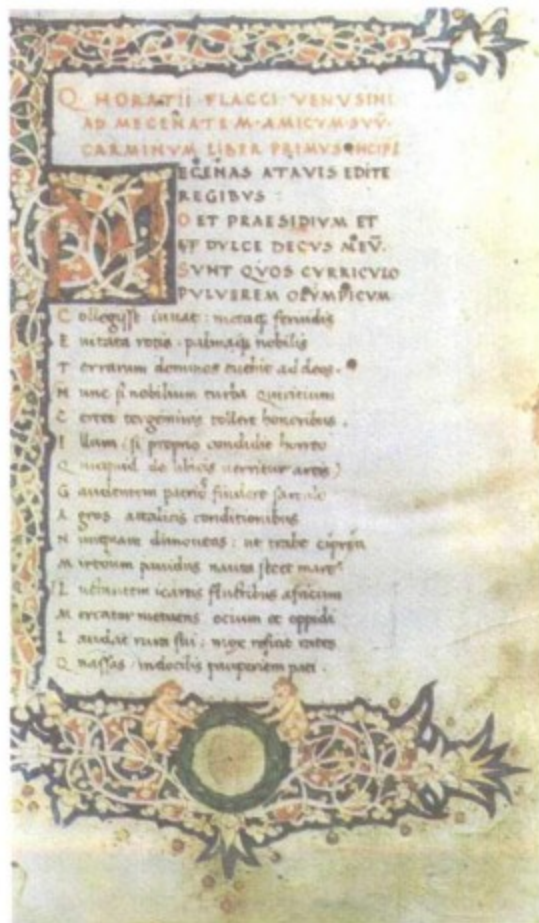 Q HORATII FLACCI VENVSINI
AD MECENATEM AMICVM SVV̄
CARMINVM LIBER PRIMVS INCIPI
MECENAS ATAVIS EDITE
REGIBVS :
O ET PRAESIDIVM ET
DVLCE DECVS MEV̄.
SVNT QVOS CVRRICVLO
PVLVEREM OLYMPICVM
Collegisse iuuat : metaq; feruidis
Euitata rotis . palmaq; nobilis
Terrarum dominos euehit ad deos .
Hunc si nobilium turba quiritium
Certet tergeminis tollere honoribus .
Illum (si proprio condidit horreo
Quicquid de libicis uerritur areis )
Gaudentem patrios findere sarculo
Agros attalicis conditionibus
Nunquam dimoueas : ut trabe cipria
Mirtoum pauidus nauta secet mare
Luctantem icariis fluctibus africum
Mercator metuens ocium et oppidi
Laudat rura sui : mox reficit rates
Quassas indocilis pauperiem pati .